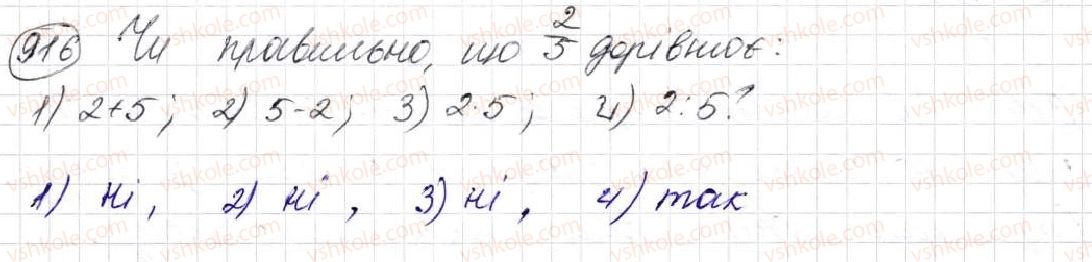 916 Чи правильно, що 2/5 дорівнює:
1) 2+5; 2) 5-2; 3) 2·5; 4) 2:5?
1) ні, 2) ні, 3) ні, 4) так